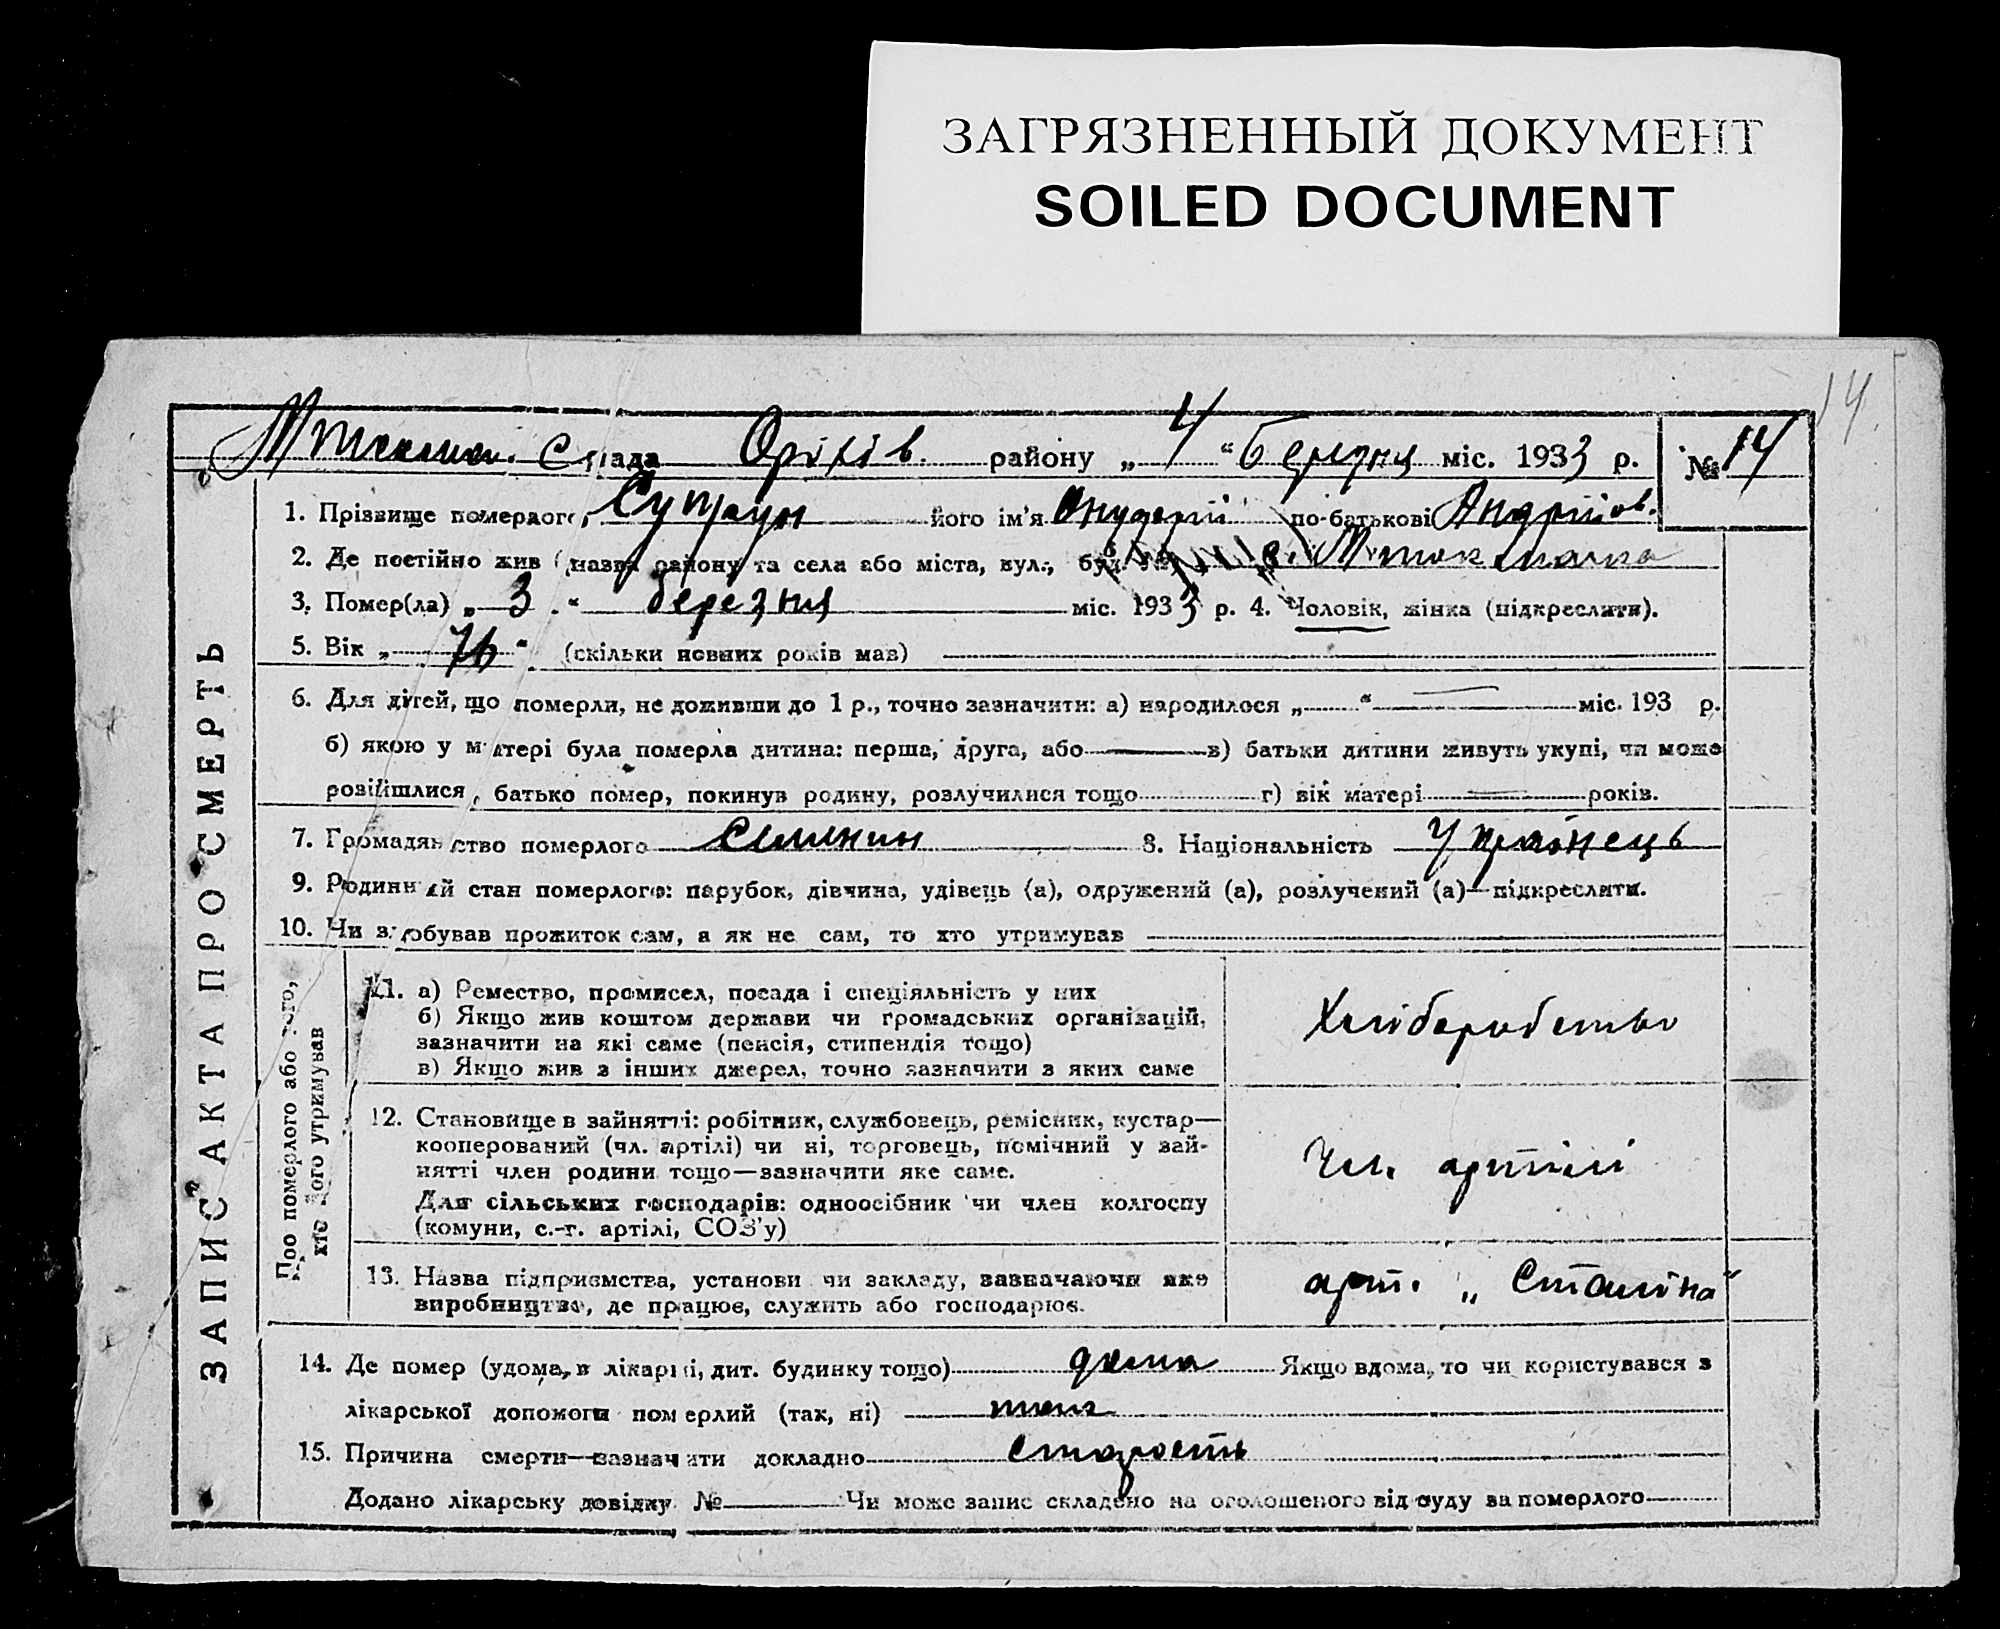 ЗАГРЯЗНЕННЫЙ ДОКУМЕНТ
SOILED DOCUMENT
14
М Токмач. Сілрада Оріхів. району „ 4 “ Березня міс. 1933 р. № 14
1. Прізвище померлого, Супрун його ім'я по-батькові Андрійов.
2. Де постійно жив (назва району та села або міста, вул., буд. № с. М Токмачка
3. Помер(ла) „ 3 “ березня міс. 1933 р. 4. Чоловік, жінка (підкреслити).
5. Вік „ 76 “ (скільки повних років мав)
6. Для дітей, що померли, не доживши до 1 р., точно зазначити: а) народилося „ “ міс. 193 р.
б) якою у матері була померла дитина: перша, друга, або в) батьки дитини живуть укупі, чи може
розійшлися, батько помер, покинув родину, розлучилися тощо г) вік матері років.
7. Громадянство померлого Селянин 8. Національність Українець
9. Родинний стан померлого: парубок, дівчина, удівець (а), одружений (а), розлучений (а)—підкреслити.
10. Чи здобував прожиток сам, а як не сам, то хто утримував
ЗАПИС АКТА ПРО СМЕРТЬ
Про померлого або того,
хто його утримував
11. а) Ремество, промисел, посада і спеціяльність у них
б) Якщо жив коштом держави чи громадських організацій,
зазначити на які саме (пенсія, стипендія тощо)
в) Якщо жив з інших джерел, точно зазначити з яких саме
Хліборобство
12. Становище в зайнятті: робітник, службовець, ремісник, кустар—
кооперований (чл. артілі) чи ні, торговець, помічний у зай-
нятті член родини тощо—зазначити яке саме.
Для сільських господарів: одноосібник чи член колгоспу
(комуни, с.-г. артілі, СОЗ'у)
Чл. артілі
13. Назва підприємства, установи чи закладу, зазначаючи яке
виробництво, де працює, служить або господарює.
арт. „ Сталіна“
14. Де помер (удома, в лікарні, дит. будинку тощо) дома Якщо вдома, то чи користувався з
лікарської допомоги померлий (так, ні)
15. Причина смерти—зазначити докладно старость
Додано лікарську довідку № Чи може запис складено на оголошеного від суду за померлого